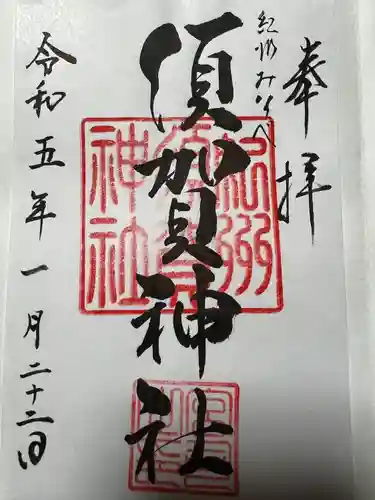 奉拝
紀州みなべ
須賀神社
令和五年一月二十二日
紀州
須賀
神社